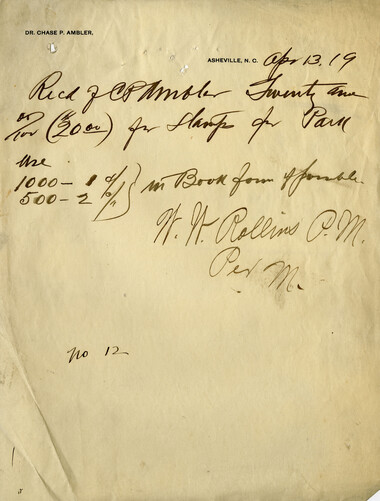 DR. CHASE P. AMBLER,
ASHEVILLE, N. C. Apr 13, 19
Recd of C P Ambler Twenty
no/100 ($20 00) for Stamps for Park
use
1000 - 1 ¢
500 - 2 ¢ } in Book form if possible
W. W. Rollins P. M.
Per M.
No 12